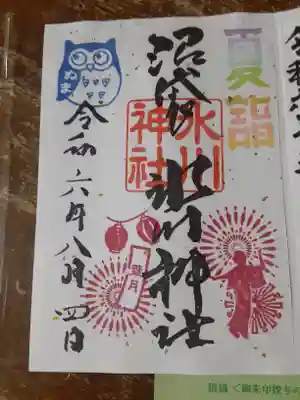 夏詣
沼袋
氷川神社
氷川
神社
ぬま
葉月
令和六年八月四日